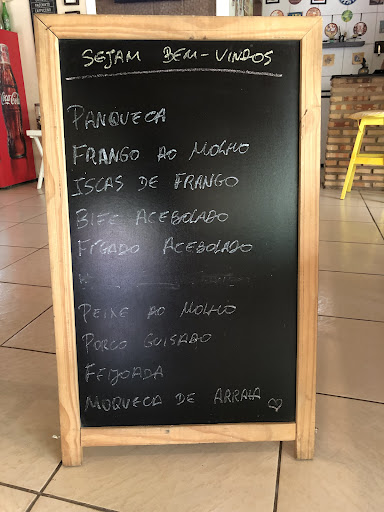 Coca-Cola
SEJAM BEM-VINDOS
PANQUECA
FRANGO AO MOLHO
ISCAS DE FRANGO
BIFE ACEBOLADO
FÍGADO ACEBOLADO
PEIXE AO MOLHO
PORCO GUISADO
FEIJOADA
MOQUECA DE ARRAIA